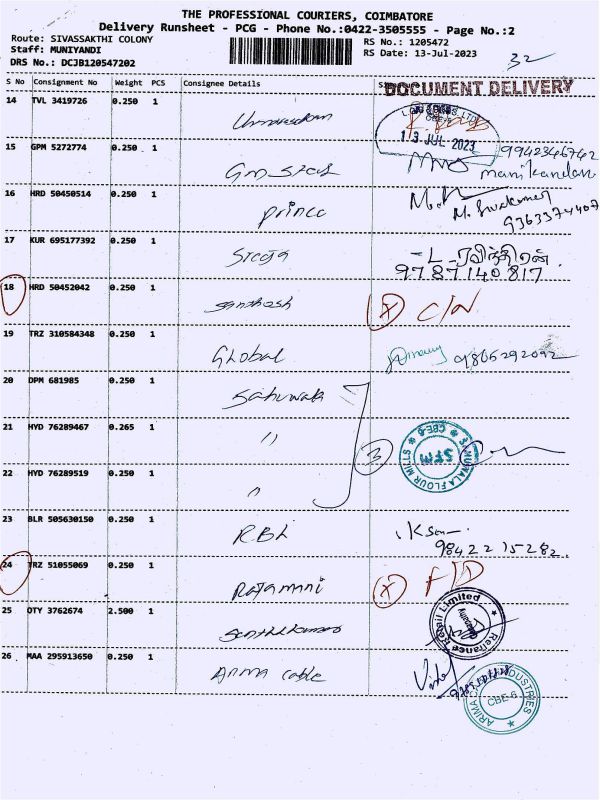 THE PROFESSIONAL COURIERS, COIMBATORE
Delivery Runsheet - PCG - Phone No.:0422-3505555 - Page No.:2
Route: SIVASSAKTHI COLONY
Staff: MUNIYANDI
DRS No.: DCJB120547202
RS No.: 1205472
RS Date: 13-Jul-2023
32
S No Consignment No Weight PCS Consignee Details
DOCUMENT DELIVERY
14 TVL 3419726 0.250 1
13 JUL 2023
15 GPM 5272774 0.250 1 GM Steel
9942346742
manikandan
16 HRD 50450514 0.250 1 Prince
M. Sivakumar
9363374407
17 KUR 695177392 0.250 1 Sreeja
9787140817
18 HRD 50452042 0.250 1 Santhosh X C/N
19 TRZ 310584348 0.250 1 Global 9865292092
20 DPM 681985 0.250 1
21 HYD 76289467 0.265 1 "
3
FLOUR MILLS CBE-6
SFM
22 HYD 76289519 0.250 1 "
23 BLR 505630150 0.250 1 RBL
9842215282
24 TRZ 51055069 0.250 1 Rajamani X F/D
25 OTY 3762674 2.500 1 Senthilkumar
Reliance Retail Limited
26 MAA 295913650 0.250 1 Arima Cable
ARIMA INDUSTRIES
CBE-6